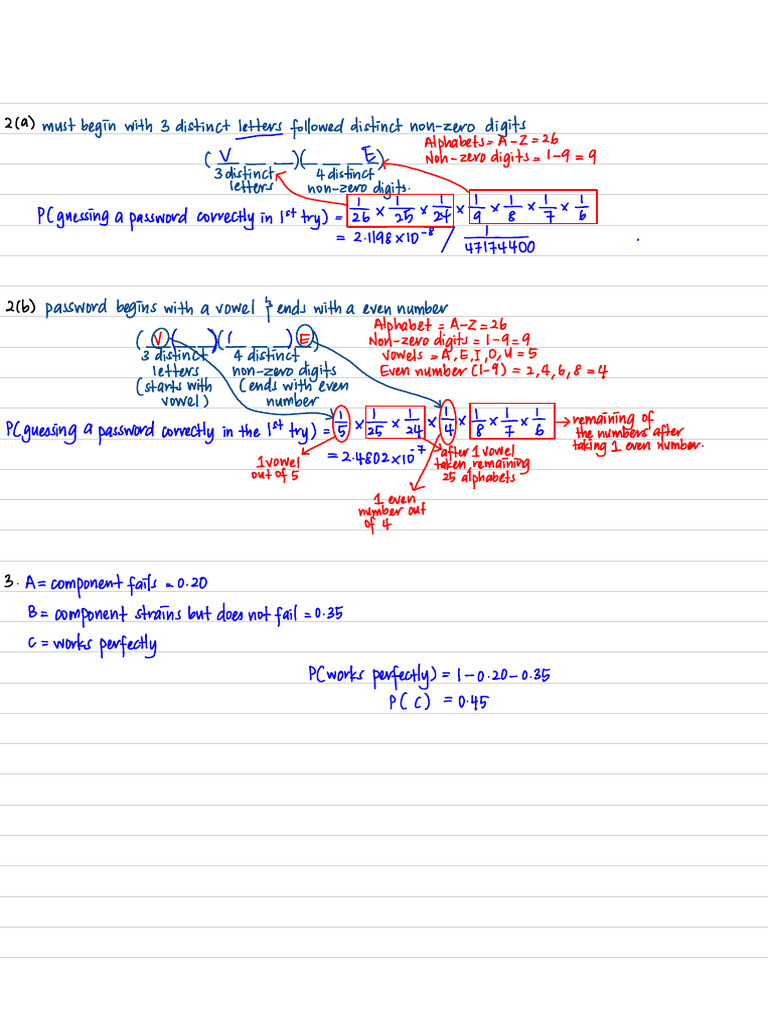 2(a) must begin with 3 distinct letters followed distinct non-zero digits
Alphabets = A-Z = 26
Non-zero digits = 1-9 = 9
( V _ _ _ )( _ _ _ E )
3 distinct letters
4 distinct non-zero digits.
P(guessing a password correctly in 1st try) = 1/26 × 1/25 × 1/24 × 1/9 × 1/8 × 1/7 × 1/6
= 2.1198 × 10⁻⁸ / 1/47174400
2(b) password begins with a vowel & ends with a even number
Alphabet = A-Z = 26
Non-zero digits = 1-9 = 9
Vowels = A, E, I, O, U = 5
Even number (1-9) = 2, 4, 6, 8 = 4
( V ( _ _ )( _ _ _ ) E )
3 distinct letters (starts with vowel)
4 distinct non-zero digits (ends with even number
P(guessing a password correctly in the 1st try) = 1/5 × 1/25 × 1/24 × 1/4 × 1/8 × 1/7 × 1/6
→ remaining of the numbers after taking 1 even number.
= 2.4802 × 10⁻⁷
1 vowel out of 5
after 1 vowel taken, remaining 25 alphabets
1 even number out of 4
3. A = component fails = 0.20
B = component strains but does not fail = 0.35
C = works perfectly
P(works perfectly) = 1 - 0.20 - 0.35
P(C) = 0.45